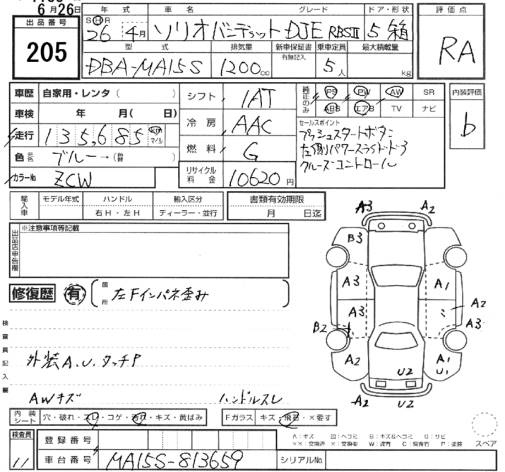 6月26日
出品番号
205
年式 車名 グレード ドア・形状
SH 26年4月 ソリオバンデット DJE RBSⅡ 5 箱
型式 排気量 新車保証書 乗車定員 最大積載量
有無記入
DBA-MA15S 1200cc 5人 kg
評価点
RA
車歴 自家用・レンタ( )
車検 年 月( 日)
走行 135,685 km マイル
色 ブルー→(替 )
カラーNo ZCW
シフト IAT
冷房 AAC
燃料 G
リサイクル料金 10620円
純正のみ PS PW AW SR
ABS エアB TV ナビ
セールスポイント
プッシュスタートボタン
左側パワースライドドア
クルーズコントロール
内装評価
b
輸入車 モデル年式 ハンドル 輸入区分
右H・左H ディーラー・並行
書類有効期限
月 日迄
出品店申告欄
※注意事項等記載
修復歴 有 箇所 左Fインパネ歪み
検査員記入欄
外装A.U.タッチP
AWキズ ハンドルスレ
A3 A2
B3
A3 A1
A3 A2
B2 A3
A2 U2 A1 U1
A2 U2
内装シート 穴・破れ・スレ・コゲ・汚れ・キズ・黄ばみ
Fガラス キズ・飛石・×要す
A:キズ U:凹ミ B:キズ&凹ミ S:サビ
スペア
検査員 11
登録番号
車台番号 MA15S-813659
シリアルNo.